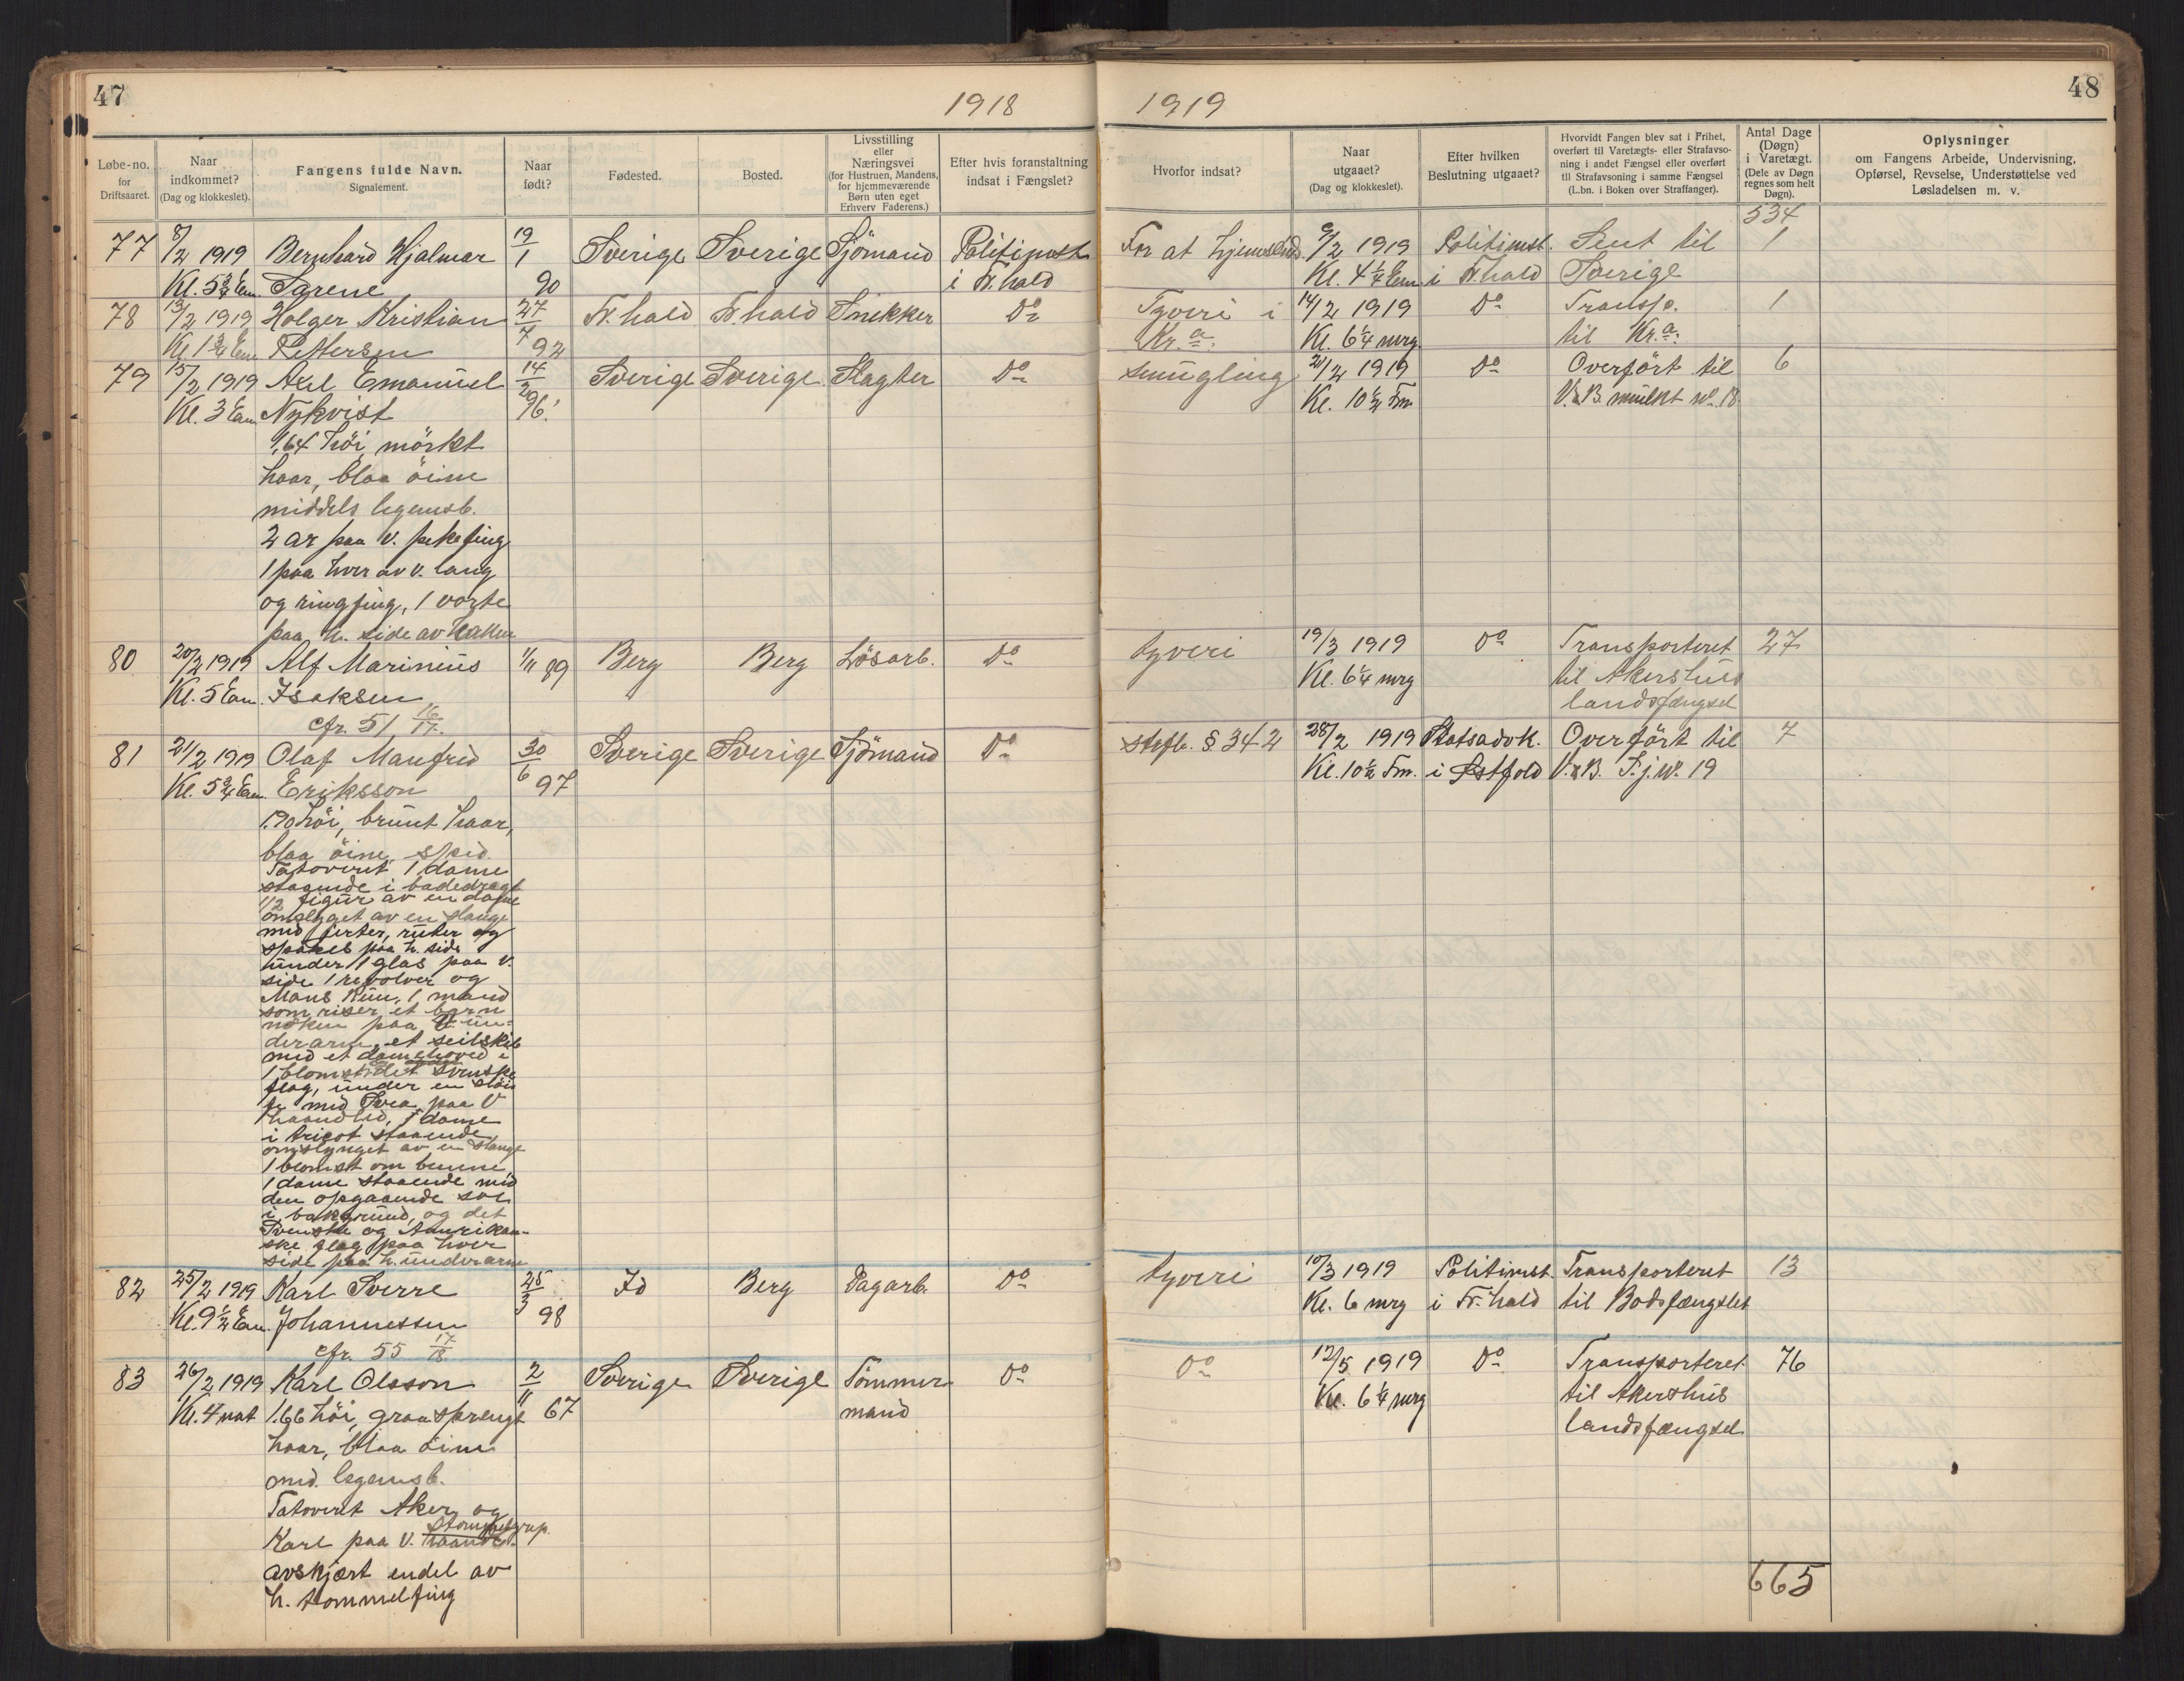 47
1918
Løbe-no.
for
Driftsaaret.
Naar
indkommet?
(Dag og klokkeslet).
Fangens fulde Navn.
Signalement.
Naar
født?
Fødested.
Bosted.
Livsstilling
eller
Næringsvei
(for Hustruen, Mandens,
for hjemmeværende
Børn uten eget
Erhverv Faderens.)
Efter hvis foranstaltning
indsat i Fængslet?
77 8/2 1919 Bernhard Hjalmar 19/1 Sverige Sverige Sjömand Politimest.
Kl. 5 3/4 Em. 90 i Fr.hald
78 13/2 1919 Holger Kristian 27/7 Fr.hald Fr.hald Snekker Do
Kl. 1 3/4 Em. Pettersen 92
79 15/2 1919 Axel Emanuel 14/2 Sverige Sverige Slagter Do
Kl. 3 Em. Nykvist 96.
1,64 höi, mörkt
haar, blaa öine
middels legemsb.
2 ar paa v. pekefing
1 paa hver av v. lang
og ringfing, 1 vorte
paa h. side av haken
80 20/2 1919 Alf Marinius 1/11 89 Berg Berg Lösarb. Do
Kl. 5 Em. Isaksen
cfr. 51 16/17.
81 21/2 1919 Olaf Manfred 30/6 Sverige Sverige Sjömand Do
Kl. 5 3/4 Em. Eriksson 97
1.70 höi, brunt haar,
blaa öine, sped.
Tatoveret 1 dame
staaende i badedragt
1/2 figur av en dame
omslyget av en slange
med jerter, ruter og
paa h. side
under 1 glas paa v.
side 1 revolver og
Mans Ruin, 1 mand
som riser et barn
nöken paa v. un-
derarm, et seilskib
med et damehoved i
1 blomst det svenske
flag, under en
med Svea paa V
haandled, 1 dame
i tricot staaende
omslynget av en slange
1 blomst om benene
1 dame staaende med
den opgaaende sol
i bakgrund, og det
Svenske og Amerikan-
ske flag paa hver
side paa h. underarm
82 25/2 1919 Karl Sverre 25/3 Id Berg Dagarb. Do
Kl. 9 1/2 Em. Johannessen 98
cfr. 55 17/18
83 26/2 1919 Karl Olsson 2/11 Sverige Sverige Tömmer- Do
Kl. 4 nat 1.66 höi, graasprengt 67 mand
haar, blaa öine
med. legemsb.
Tatoveret Aker og
Karl paa v.
avskjært endel av
h. tommelfing
48
1919
Hvorfor indsat?
Naar
utgaaet?
(Dag og klokkeslet).
Efter hvilken
Beslutning utgaaet?
Hvorvidt Fangen blev sat i Frihet,
overført til Varetægts- eller Strafavso-
ning i andet Fængsel eller overført
til Strafavsoning i samme Fængsel
(L.bn. i Boken over Straffanger).
Antal Dage
(Døgn)
i Varetægt.
(Dele av Døgn
regnes som helt
Døgn).
Oplysninger
om Fangens Arbeide, Undervisning,
Opførsel, Revselse, Understøttelse ved
Løsladelsen m. v.
534
For at hjemsend. 9/2 1919 Politimst. Sent til 1
Kl. 4 1/4 Em. i Fr.hald Sverige
Tyveri i 14/2 1919 Do Transp. 1
Kr.a. Kl. 6 1/4 mrg. til Kr.a.
smugling 21/2 1919 Do Overfört til 6
Kl. 10 1/2 Fm. V.&B. mulkt No. 18
tyveri 19/3 1919 Do Transporteret 27
Kl. 6 1/4 mrg til Akershus
landsfængsel
strfl. § 342 28/2 1919 Statsadvok. Overfört til 7
Kl. 10 1/2 Fm. i Østfold V.&B. F.j. No. 19
tyveri 10/3 1919 Politimst. Transporteret 13
Kl. 6 mrg i Fr.hald til Bodsfængslet
Do 12/5 1919 Do Transporteret 76
Kl. 6 1/4 mrg til Akershus
landsfængsel
665